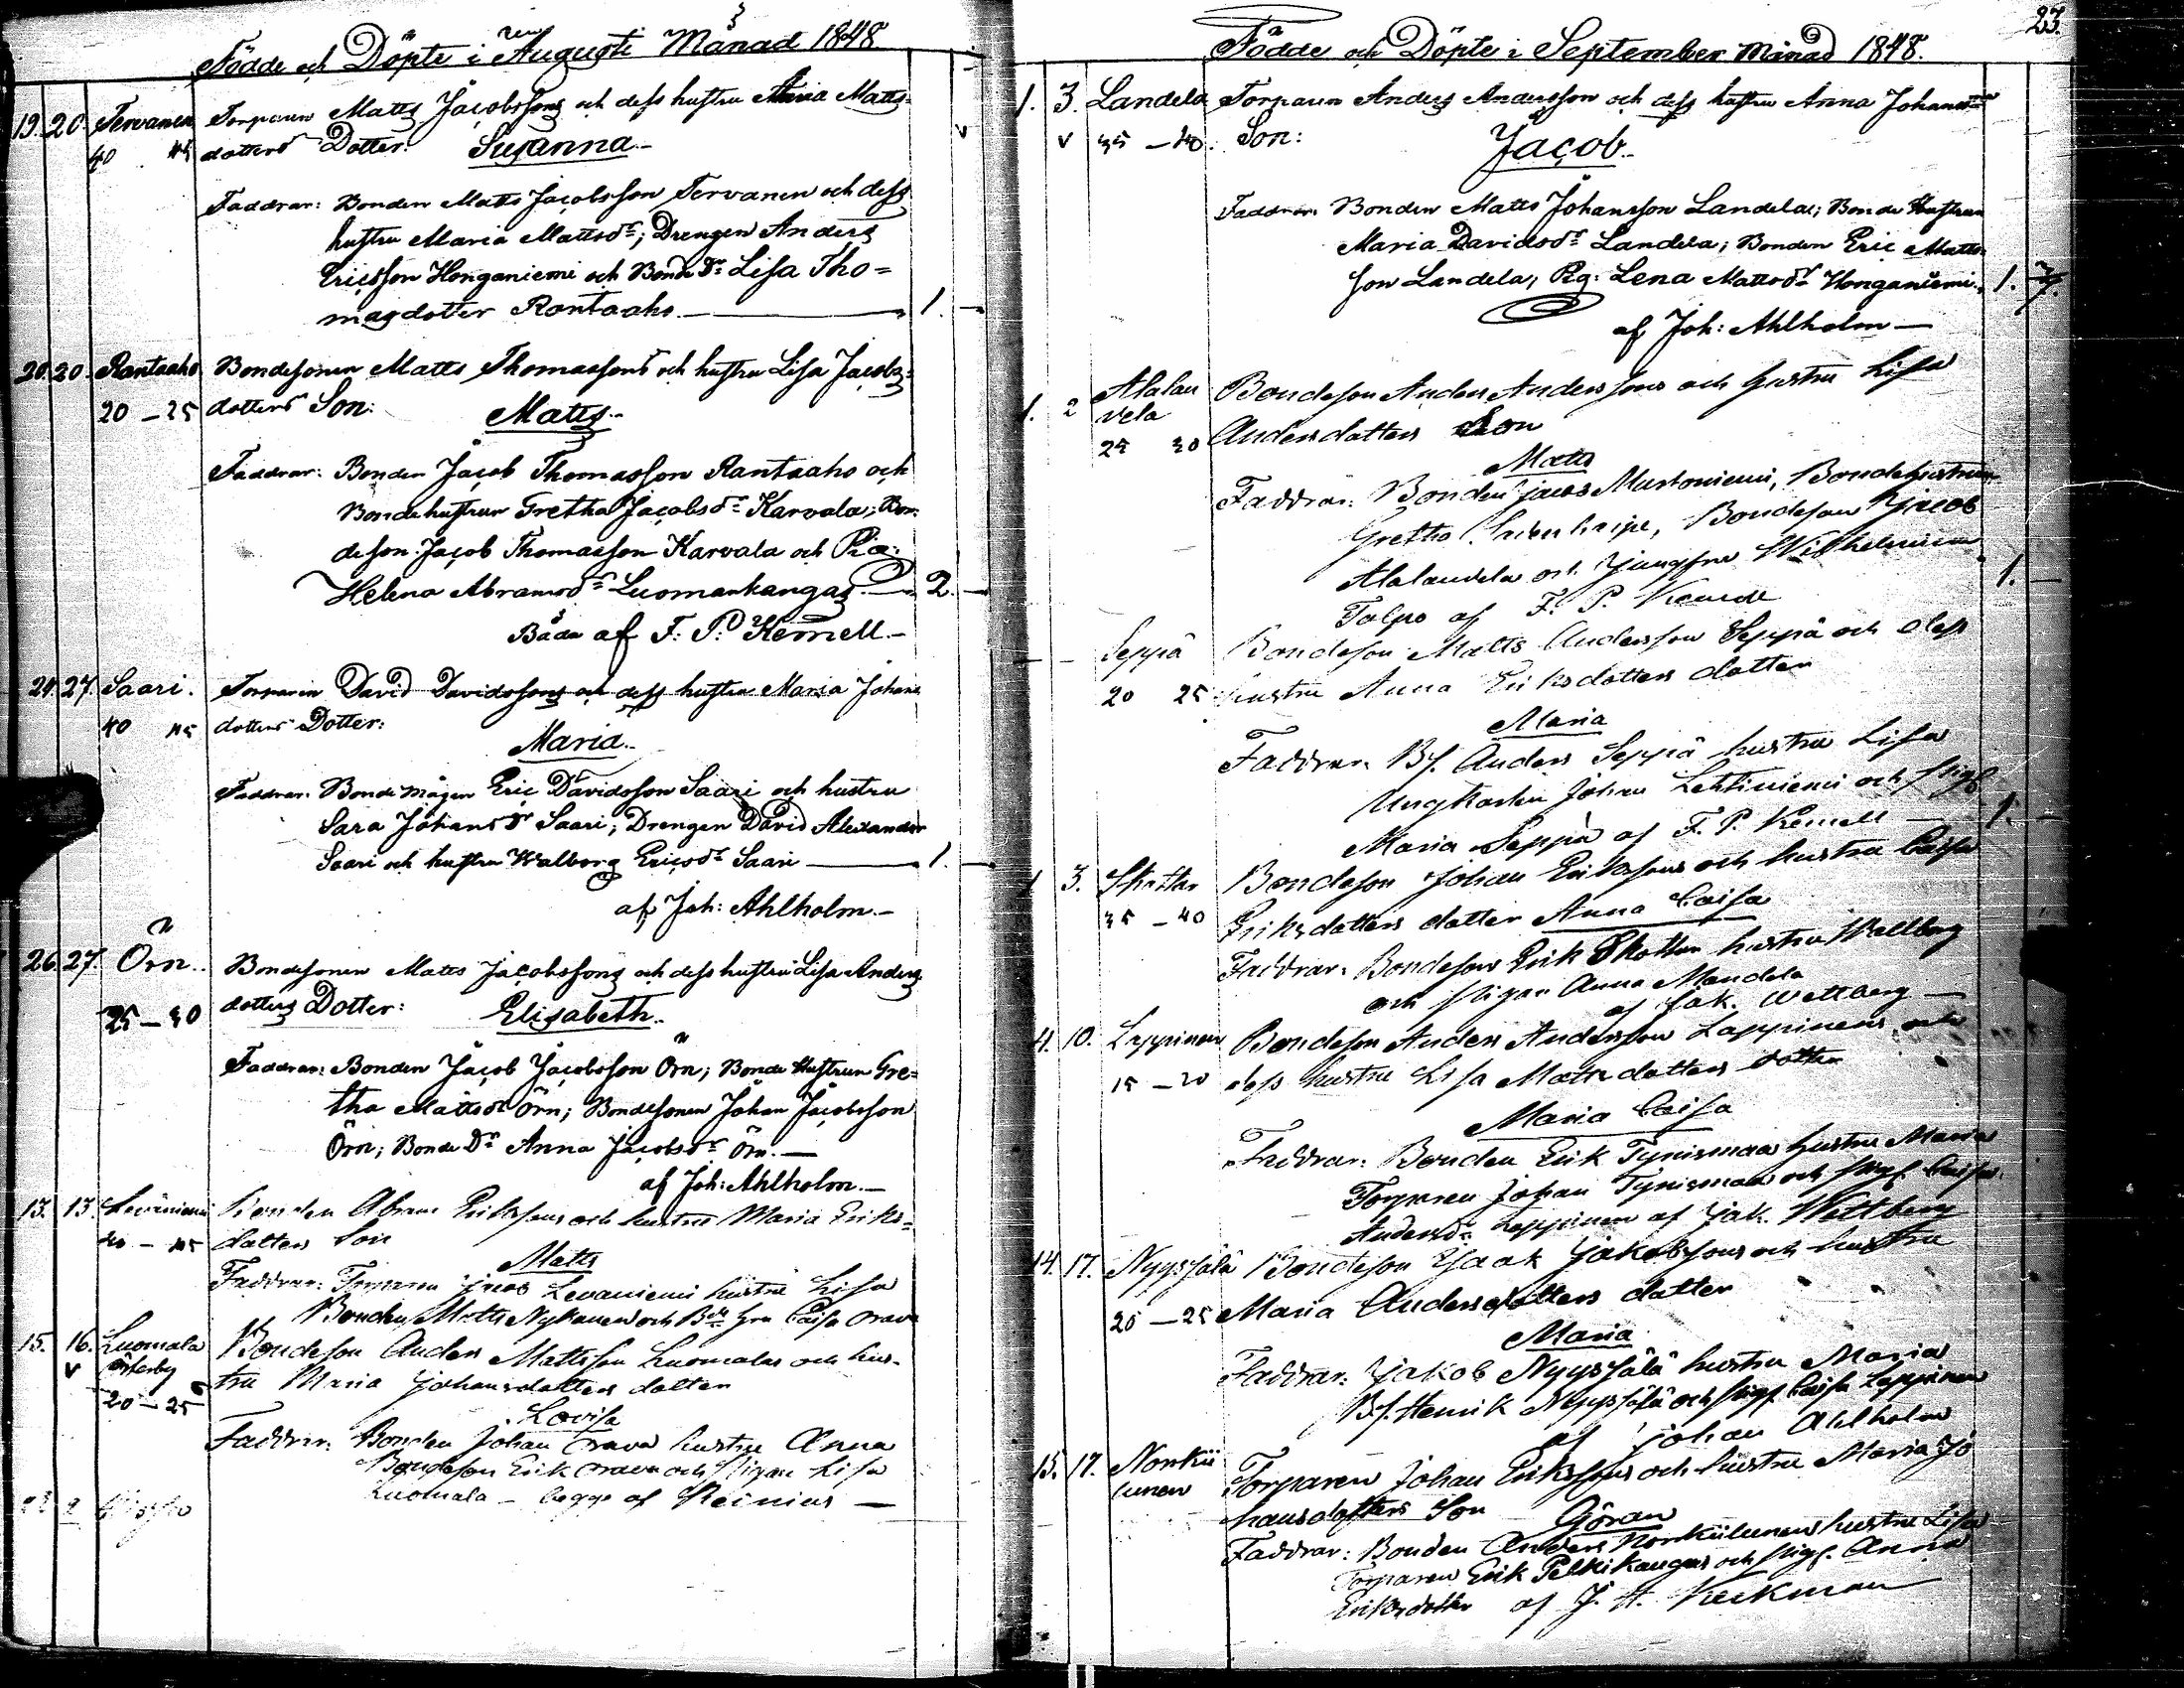 Födde och Döpte i Augusti Månad 1848
19. 20. Tervanen Torparen Matts Jacobssons och dess hustru Maria Matts-
40 45 dotters Dotter: Susanna.
Faddrar: Bonden Matts Jacobsson Tervanen och dess
hustru Maria Mattsdr; Drengen Anders
Ericsson Honganiemi och Bond Dr Lisa Tho=
masdotter Rantaaho. 1.
20. 20. Rantaaho Bondesonen Matts Thomassons och hustru Lisa Jacobs
20 – 25 dotters Son: Matts.
Faddrar: Bonden Jacob Thomasson Rantaaho och
Bondehustrun Gretha Jacobsdr Karvala; Bon-
deson Jacob Thomasson Karvala och Pig.
Helena Abramsdr Luomankangas. 2.
Båda af F. P. Kemell.
24. 27. Saari. Torparen David Davidssons och dess hustru Maria Johans
40 45 dotters Dotter:
Maria.
Faddrar: Bonde mågen Eric Davidsson Saari och hustru
Sara Johansdr Saari; Drengen David Alexander
Saari och hustru Walborg Ericsdr Saari 1.
af Joh: Ahlholm.
26. 27. Örn. Bondesonen Matts Jacobssons och dess hustru Lisa Anders
25 – 30 dotters Dotter: Elisabeth.
Faddrar: Bonden Jacob Jacobsson Örn; Bonde Hustrun Gre-
tha Mattsdr Örn; Bondesonen Johan Jacobsson
Örn; Bonde Dr Anna Jacobsdr Örn.
af Joh: Ahlholm.
13. 13. Leväniemi Bonden Abram Erikssons och hustrus Maria Eriks=
40 – 45 dotters Son
Matts
Faddrar: Torparen Jacob Levaniemi hustru Lisa
Bonden Matts Nykanen och Caisa Orava
15. 16. Luomala Bondeson Anders Mattsson Luomalas och hus-
v Österby tru Maria Johansdotters dotter
20 – 25
Lovisa
Faddrar: Bonden Johan Orava hustru Anna
Bondeson Erik Orava och Pigan Lisa
Luomala – begge af Reinius
23.
Födde och Döpte i September Månad 1848.
1. 3. Landela Torparen Anders Andersson och dess hustru Anna Johans
v 35 – 40. Son: Jacob.
Faddrar: Bonden Matts Johansson Landela; Bonde Hustrun
Maria Davidsdr Landela; Bonden Eric Matts-
son Landela; Pig: Lena Mattsdr Honganiemi. 1.
af Joh: Ahlholm
1. 2 Alalan Bondeson Anders Anderssons och hustru Lisa
vela
25 30 Andersdotters Son
Matts
Faddrar: Bonden Jacob Mustoniemi, Bondehustrun
Gretha Bondeson Jacob
Alalanvela och Jungfru Wilhelmina 1.
Talpo af F. P. Kemell
Seppä Bondeson Matts Andersson Seppä och dess
20 25 hustru Anna Eriksdotters dotter
Maria
Faddrar. Bs. Anders Seppä hustru Lisa
Ungkarlen Johan Lehtiniemi och Pig.
Maria Seppä af F. P. Kemell 1.
1 3. Skottar Bondeson Johan Erikssons och hustru Caisa
35 – 40 Eriksdotters dotter Anna Caisa
Faddrar. Bondeson Erik Skottar hustru Wallborg
och Pigan Anna Mandela
af Jak. Wettberg
4. 10. Lappinen Bondeson Anders Andersson Lappinens och
15 – 20 dess hustru Lisa Mattsdotters dotter
Maria Caisa
Faddrar. Bonden Erik Tynismaa hustru Maria
Torparen Johan Tynismaa och Pig. Caisa
Andersdr Lappinen af Jak. Wettberg
14. 17. Nyyssälä Bondeson Isaak Jakobssons och hustru
20 – 25 Maria Andersdotters dotter
Maria
Faddrar. Jakob Nyyssälä hustru Maria
Bs. Henrik Nyyssälä och Pig. Caisa Lappinen
af Johan Ahlholm
15. 17. Norkii Torparen Johan Erikssons och hustru Maria Jo
lunen hansdotters Son Göran
Faddrar: Bonden Anders Norkiilunen hustru Lisa
Torparen Erik Pelkikangas och Pig. Anna
Eriksdotter af J. H. Keckman